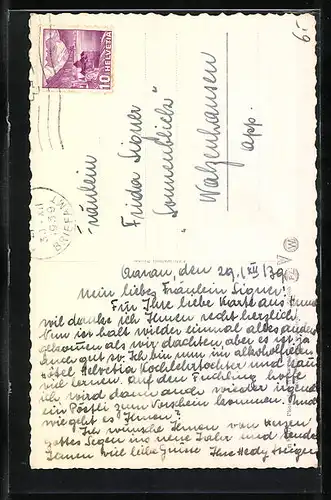 10 HELVETIA
65
Fräulein
Frieda Signer
"Sonnenblick"
Walzenhausen
App.
Aarau, den 29. XII 39
Mein liebes Fräulein Signer!
Für Ihre liebe Karte aus
will danke ich Ihnen recht herzlich.
Nun ist halt wieder einmal alles anders
gekommen als wir dachten aber es ist ja
auch gut so. Ich bin nun im alkoholfreien
Hotel Helvetia Kochlehrtochter und
viel lernen. Auf den Frühling hoffe
ich wird dann auch wieder irgend
ein Pöstli zum Vorschein kommen. Und
wie geht es Ihnen?
Ich wünsche Ihnen von Herzen
Gottes Segen ins neue Jahr und sende
Ihnen viel liebe Grüsse Ihre Hedy